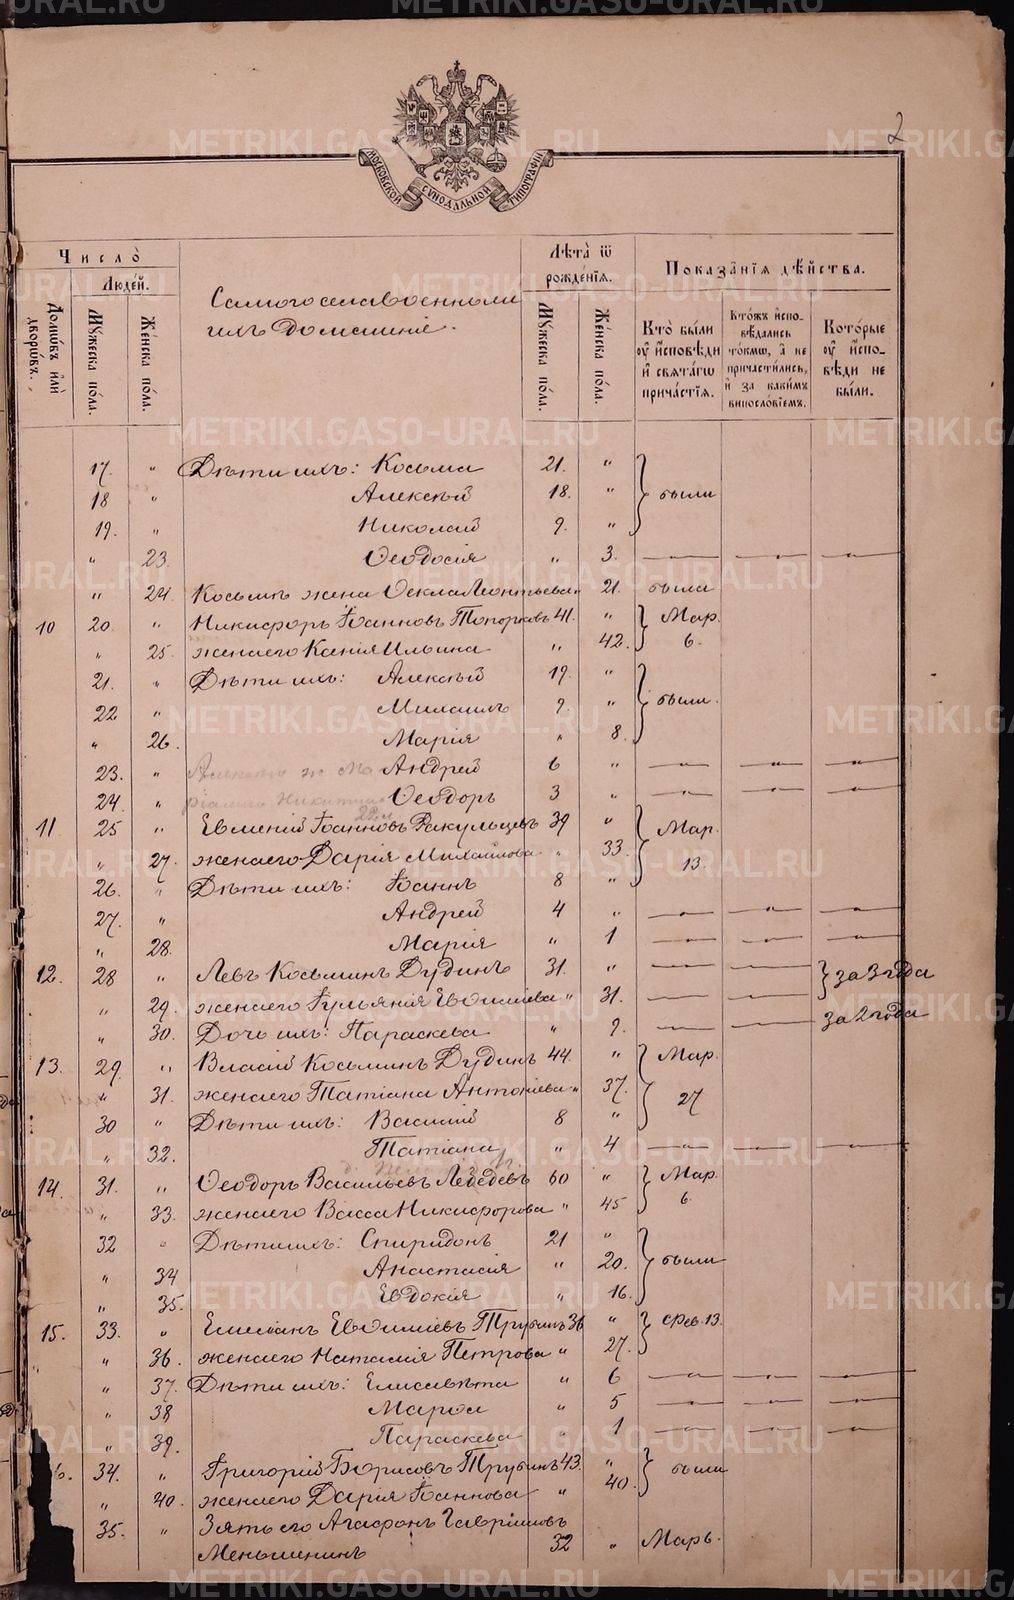 2
МОСКОВСКОЙ СУНОДАЛЬНОЙ ТИПОГРАФІИ
Число̀
Люде́й.
Домѡ́въ и҆лѝ дворѡ́въ.
Мꙋ́жеска по́ла.
Же́нска по́ла.
Самого села военные и ихъ домашніе.
Лѣ́та ѿ рожде́нїѧ.
Мꙋ́жеска по́ла.
Же́нска по́ла.
Показа̑нїѧ дѣ́йства.
Кто̀ бы́ли ᲂу҆ и҆́сповѣди и҆ свѧта́гѡ прича́стїѧ.
Кто́жъ и҆спо-
вѣ́дались то́кмѡ, а҆ не причасти́лись, и҆ за каки́мъ винословіемъ.
Кото́рые ᲂу҆ и҆́спо-
вѣди не бы́ли.
17. " Дѣти ихъ: Косьма 21. "
18 " Алексѣй 18. " были
19. " Николай 9. "
" 23. Ѳеодосія " 3.
" 24. Косьмы жена Ѳекла Леонтьева " 21. была
10 20. " Никифоръ Іоанновъ Топорковъ 41. " Мар.
" 25. жена его Ксенія Ильина " 42. 6.
21. " Дѣти ихъ: Алексѣй 19. "
22 " Михаилъ 9. " были.
" 26. Марія " 8.
23. " Андрей 6 "
24. " Ѳеодоръ 3 "
22 л
11 25 " Евмений Іоанновъ Ракульцевъ 39 " Мар.
" 27. жена его Дарія Михайлова " 33. 13.
26. " Дѣти ихъ: Іоаннъ 8 "
27. " Андрей 4 "
" 28. Марія " 1
12. 28 " Левъ Косьминъ Дудинъ 31. " за 3 года
" 29. жена его Іульянія Евѳиміева " 31.
" 30. Дочь ихъ: Параскева " 9. за 2 года
13. 29. " Власій Косьминъ Дудинъ 44. " Мар.
" 31. жена его Татіана Антоніева " 37. 27
30 " Дѣти ихъ: Василій 8 "
" 32. Татіана " 4
14. 31. " Ѳеодоръ Васильевъ Лебедевъ 60 " Мар.
" 33. жена его Васса Никифорова " 45 6.
32 " Дѣти ихъ: Спиридонъ 21 "
" 34 Анастасія " 20. были
" 35. Евдокія " 16.
15. 33. " Емеліанъ Евѳиміевъ Трубинъ 36 " Фев. 13.
" 36. жена его Наталія Петрова " 27.
" 37. Дѣти ихъ: Елисавѣта " 6
" 38 Марѳа " 5
" 39. Параскева " 1
6. 34. " Григорій Борисовъ Трубинъ 43. " были
" 40. жена его Дарія Іоаннова " 40.
35. " Зять его Агафонъ Гавріиловъ
Меньшенинъ 32 " Марь.
METRIKI.GASO-URAL.RU